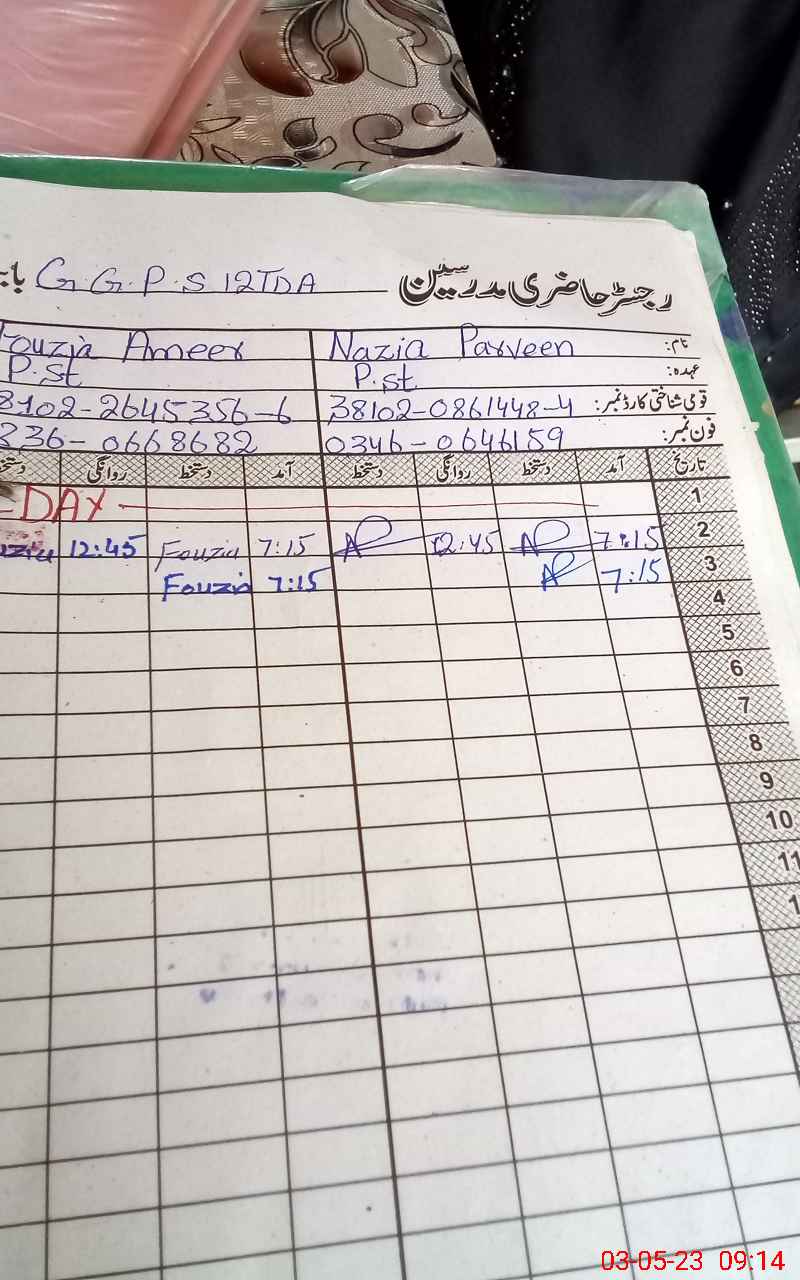 رجسٹر حاضری مدرسین G.G.P.S 12TDA
نام: Nazia Parveen Fouzia Ameer
عہدہ: P.st P.st
قومی شناختی کارڈ نمبر: 38102-0861448-4 38102-2645356-6
فون نمبر: 0346-0646159 336-0668682
تاریخ آمد دستخط روانگی دستخط آمد دستخط روانگی
1 DAY
2 7:15 12:45 7:15 Fouzia 12:45
3 7:15 7:15 Fouzia
4
5
6
7
8
9
10
11
03-05-23 09:14